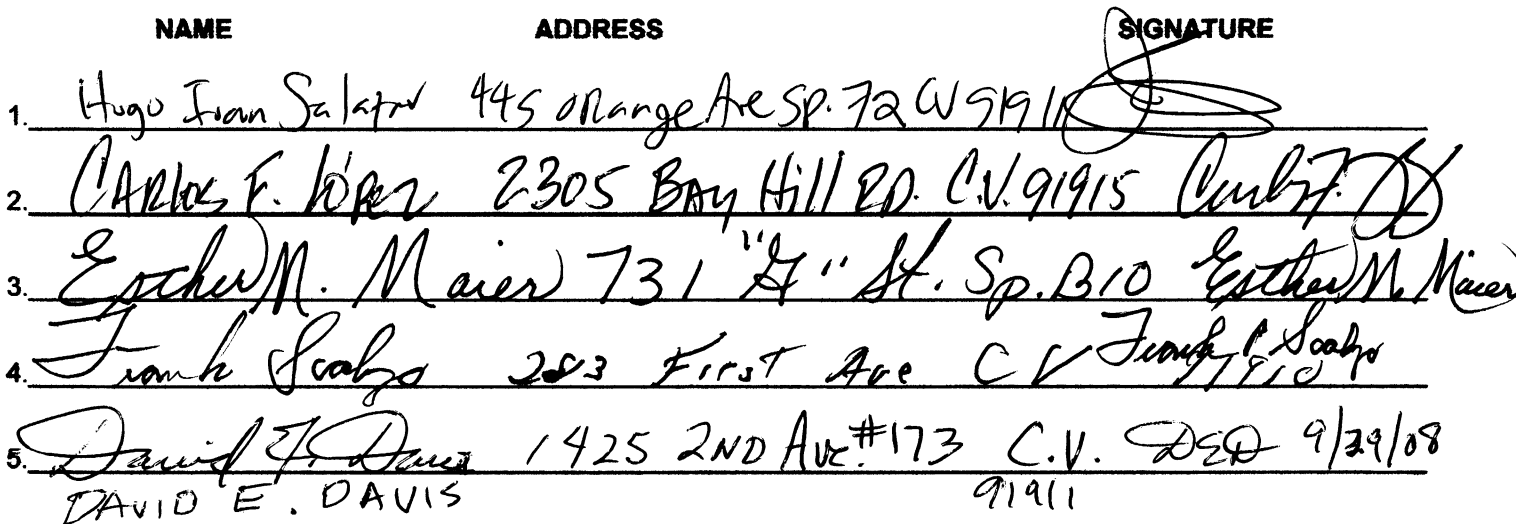 NAME ADDRESS SIGNATURE
1. Hugo Ivan Salazar 445 ORange Ave Sp. 72 CV 91911
2. CARlos F. López 2305 BAy Hill RD. C.V. 91915 Carlos F.
3. Esther M. Maier 731 "G" St. Sp. B10 Esther M. Maier
4. Frank Scalzo 283 First Ave C V Frank P Scalzo
91910
5. David E. Davis 1425 2ND Ave. #173 C.V. DED 9/29/08
DAVID E. DAVIS 91911